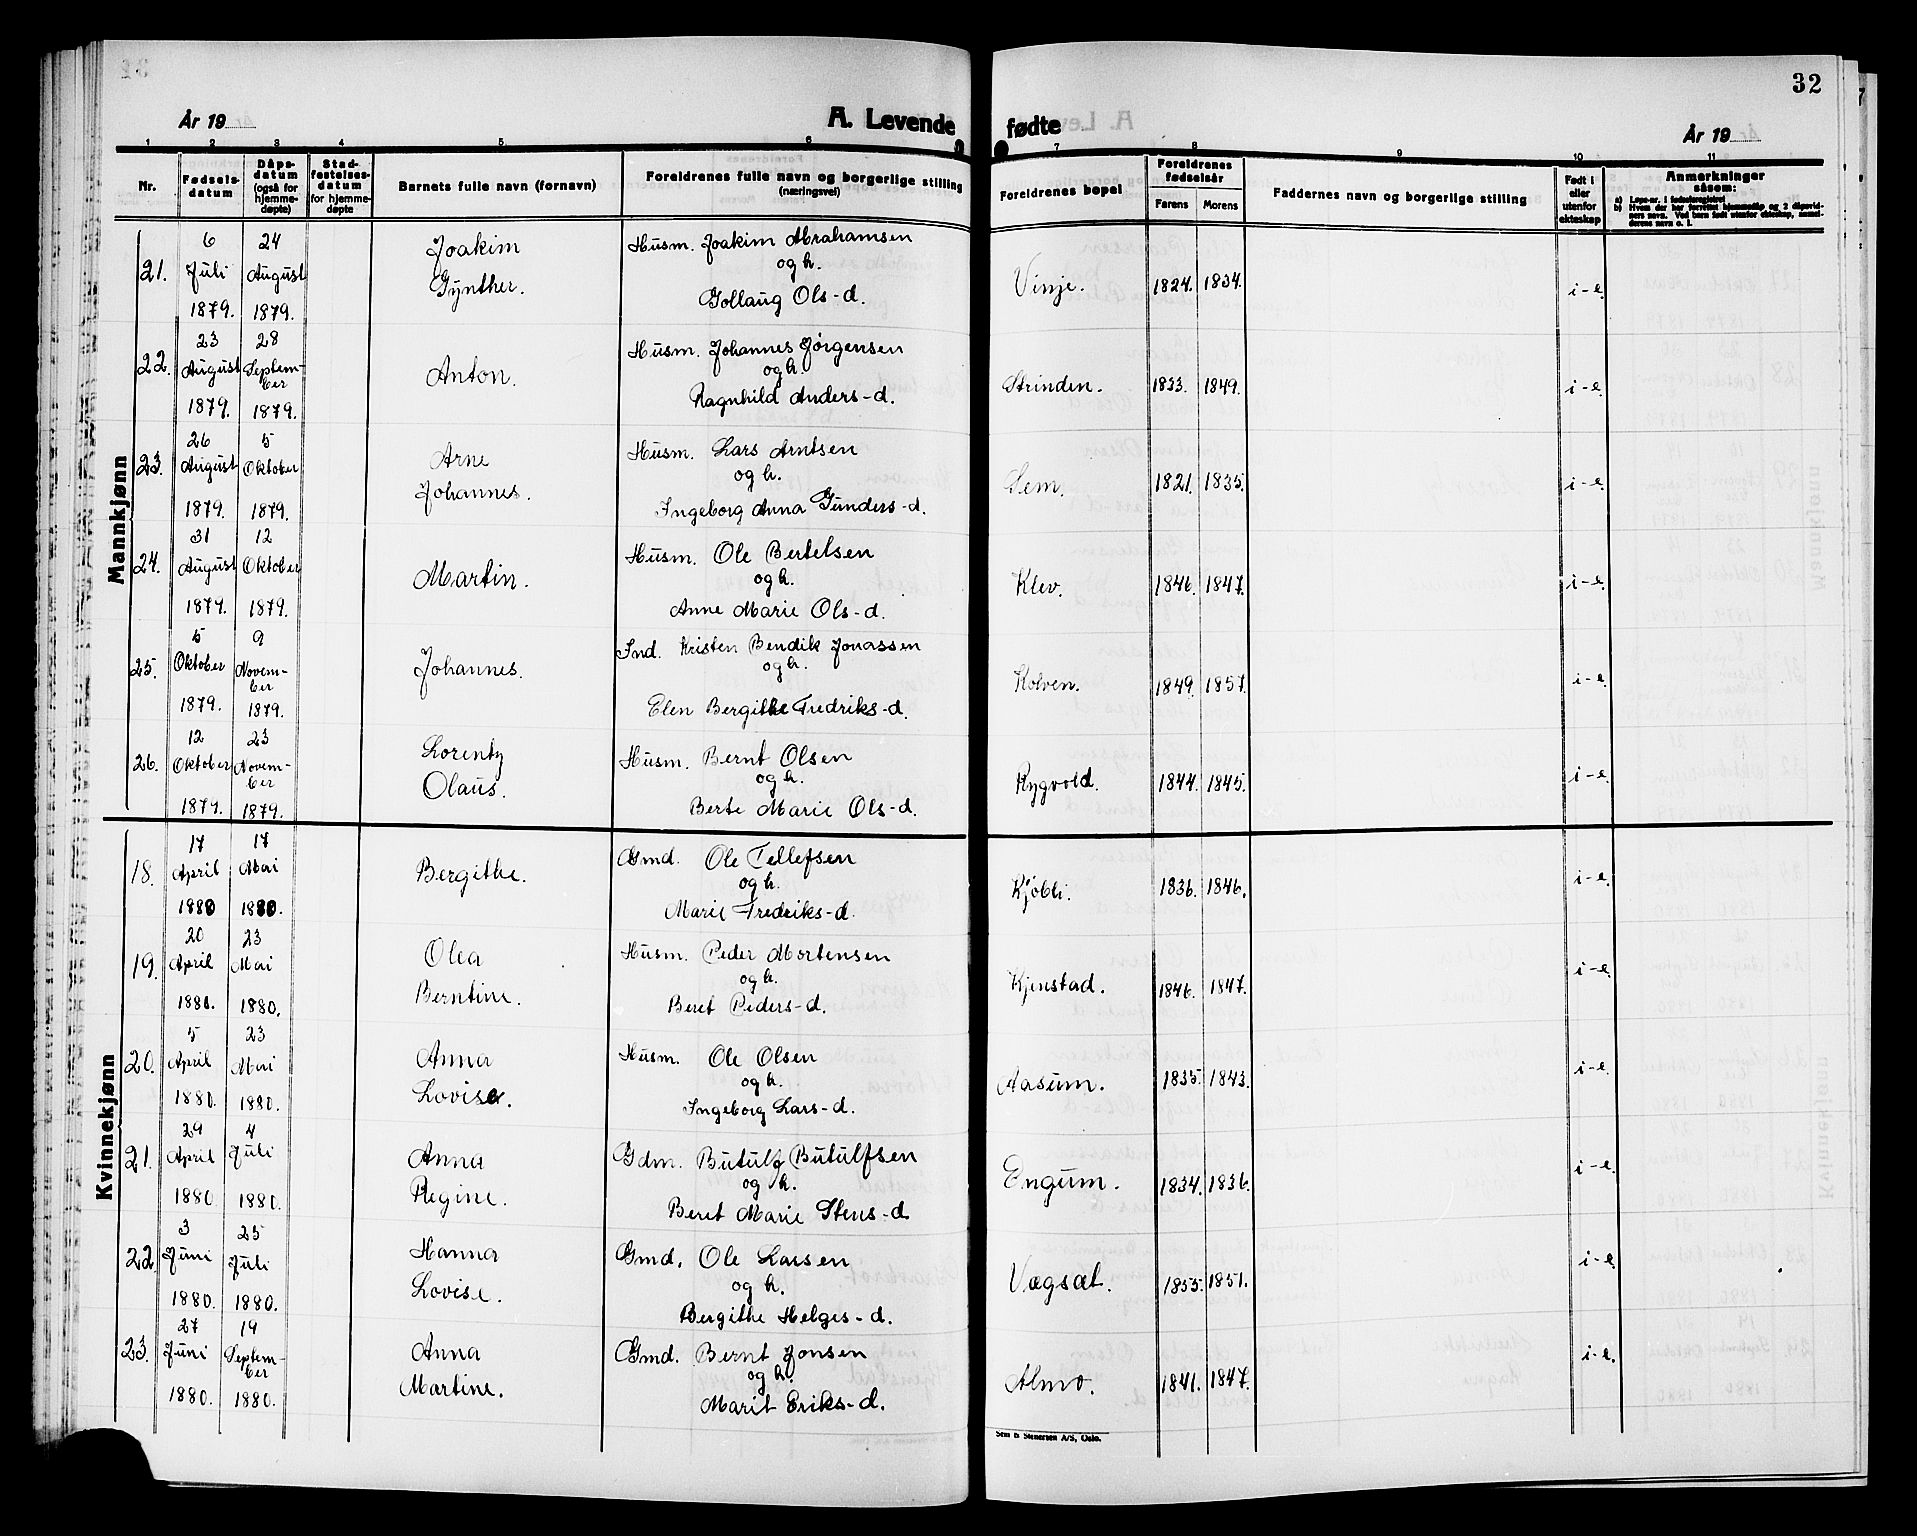 32
År 19
A. Levende fødte
År 19
1 2 3 4 5 6 7 8 9 10 11
Nr. | Fødselsdatum | Dåpsdatum (også for hjemmedøpte) | Stadfestelsesdatum for hjemmedøpte | Barnets fulle navn (fornavn) | Foreldrenes fulle navn og borgerlige stilling (næringsvei) | Foreldrenes bopel | Foreldrenes fødselsår Farens Morens | Faddernes navn og borgerlige stilling | Født i eller utenfor ekteskap | Anmerkninger såsom: a) Løpe-nr. i fødselsregistret b) Hvem der har forrettet hjemmedåp og 2 dåpsvidners navn. Ved barn født utenfor ekteskap, anmelderens navn o. l.
Mannkjønn
21. 6 Juli 1879. 24 August 1879. Joakim Gynther. Husm. Joakim Abrahamsen og h. Gollaug Ols-d. Vinje. 1824. 1834. i-e.
22. 23 August 1879. 28 September 1879. Anton. Husm. Johannes Jørgensen og h. Ragnhild Anders-d. Strinden. 1833. 1849. i-e.
23. 26 August 1879. 5 Oktober 1879. Arne Johannes. Husm. Lars Arntsen og h. Ingeborg Anna Gunders-d. Sem. 1821. 1835. i-e.
24. 31 August 1879. 12 Oktober 1879. Martin. Husm. Ole Bertelsen og h. Anne Marie Ols-d. Klev. 1846. 1847. i-e.
25. 5 Oktober 1879. 9 November 1879. Johannes. Ind. Kristen Bendik Jonassen og h. Elen Bergithe Fredriks-d. Kolven. 1849. 1857. i-e.
26. 12 Oktober 1879. 23 November 1879. Lorentz Olaus. Husm. Bernt Olsen og h. Berte Marie Ols-d. Rygvold. 1844. 1845. i-e.
Kvinnekjønn
18. 17 April 1880 17 Mai 1880. Bergithe. Gmd. Ole Tellefsen og h. Marie Fredriks-d. Kjøbli. 1836. 1846. i-e.
19. 20 April 1880. 23 Mai 1880. Olea Berntine. Husm. Peder Mortensen og h. Beret Peders-d. Kjenstad. 1846. 1847. i-e.
20. 5 April 1880. 23 Mai 1880. Anna Lovise. Husm. Ole Olsen og h. Ingeborg Lars-d. Aasum. 1835. 1843. i-e.
21. 29 April 1880. 4 Juli 1880. Anna Regine. Gdm. Butulf Butulfsen og h. Beret Marie Stens-d Engum. 1834. 1836. i-e.
22. 3 Juni 1880. 25 Juli 1880. Hanna Lovise. Gmd. Ole Larsen og h. Bergithe Helges-d. Vægsæt. 1855. 1851. i-e.
23. 27 Juni 1880. 19 September 1880. Anna Martine. Gmd. Bernt Jonsen og h. Marit Eriks-d. Almo. 1841. 1847. i-e.
Sem & Stenersen A/S, Oslo.